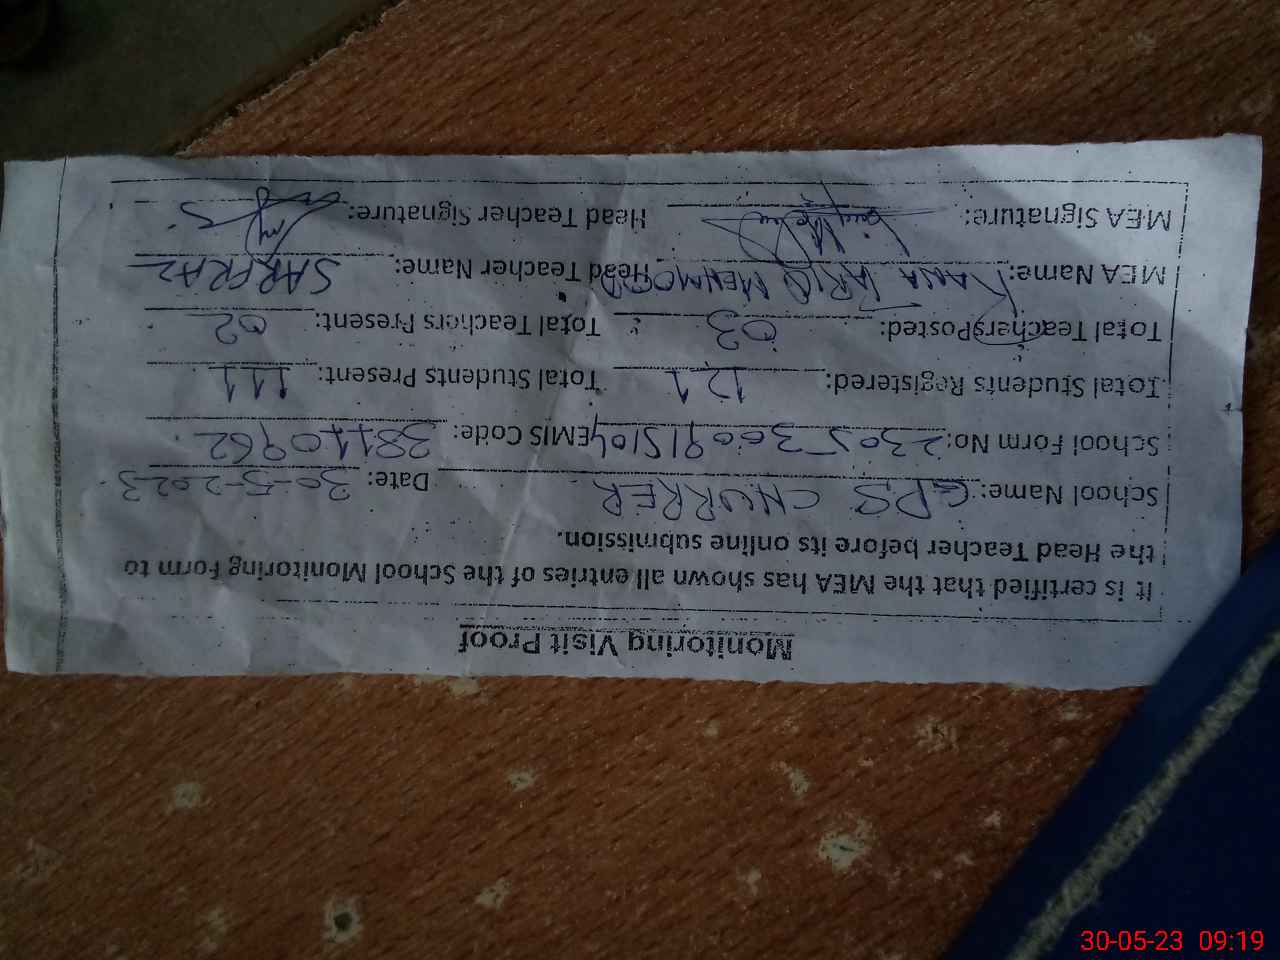 Monitoring Visit Proof
It is certified that the MEA has shown all entries of the School Monitoring Form to
the Head Teacher before its online submission.
School Name: GPS CHURRER Date: 30-5-2023
School Form No: 2305300915104 EMIS Code: 38110962
Total Students Registered: 121 Total Students Present: 111
Total Teachers Posted: 03 Total Teachers Present: 02
MEA Name: RANA TARIQ MEHMOOD Head Teacher Name: SARFRAZ
MEA Signature: Head Teacher Signature:
30-05-23 09:19